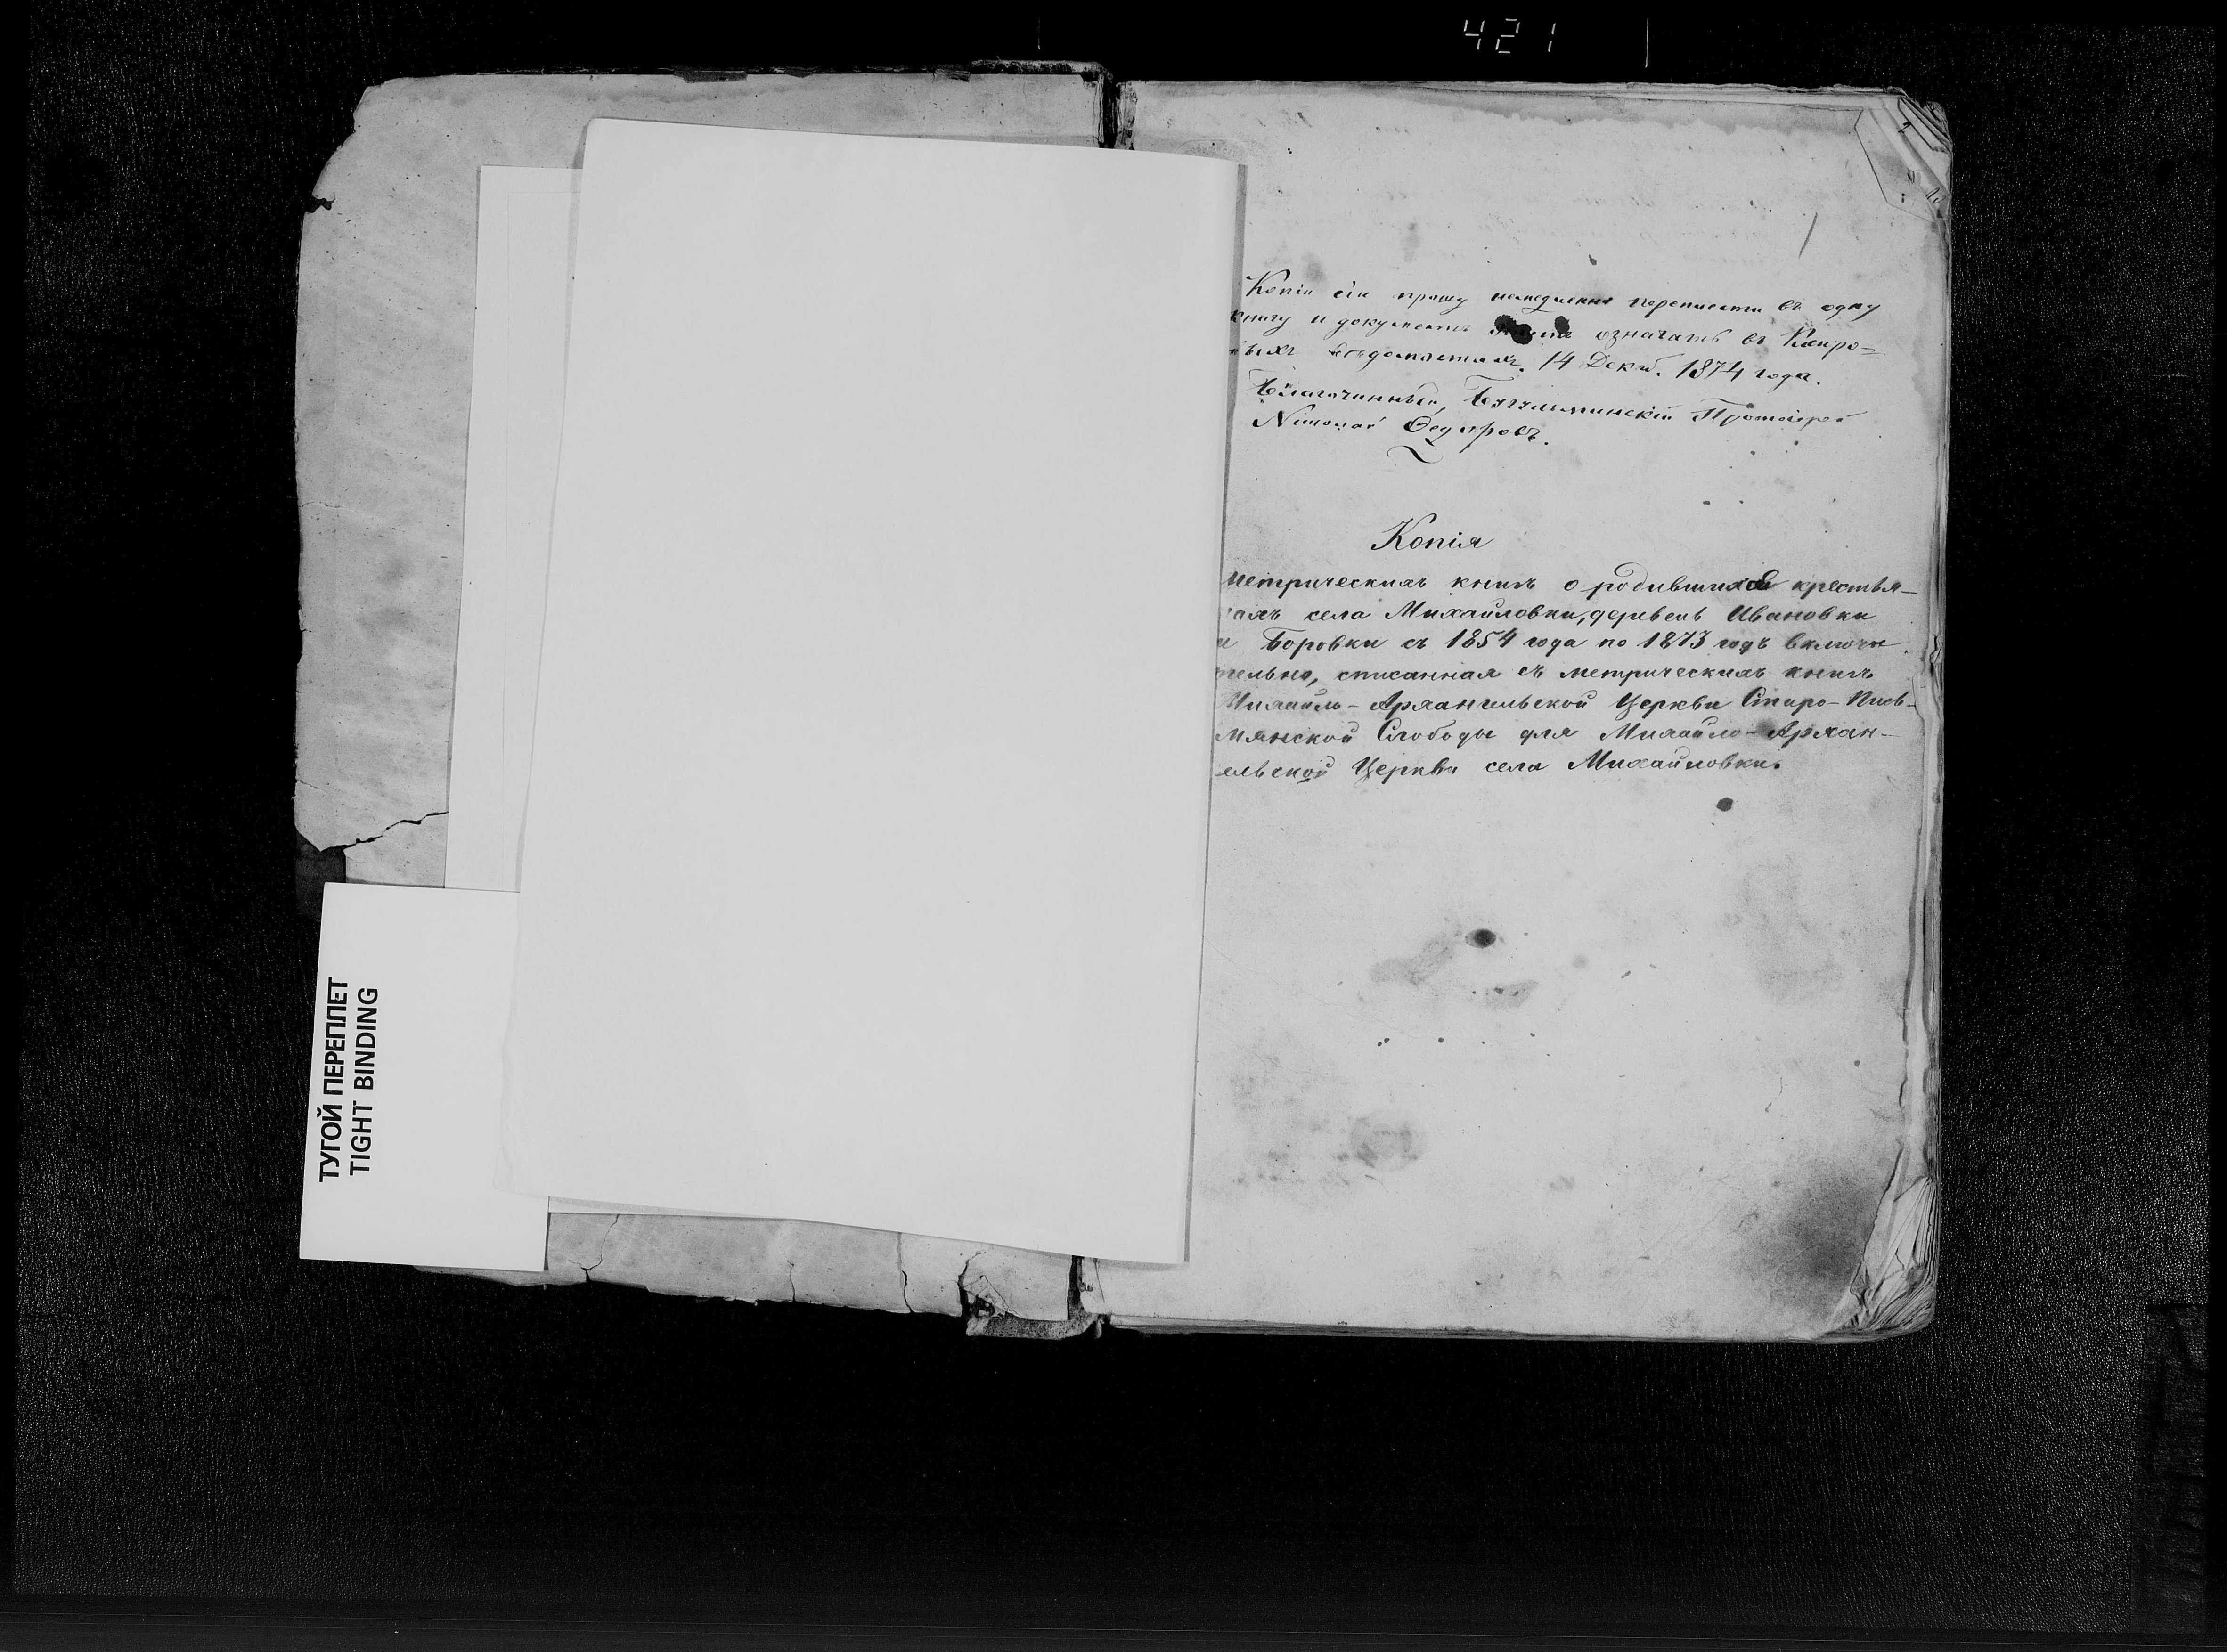 421
Копіи сіи прошу немедленно переплести въ одну
книгу и документъ означать въ Клиро-
ныхъ вѣдомостяхъ. 14 Декб. 1874 года.
Благочинный, Бугульминскій Протоіерей
Николай Ѳедоровъ.
Копія
метрическихъ книгъ о родившихся крестья-
нахъ села Михайловки, деревень Ивановки
и Боровки съ 1854 года по 1873 годъ включи
тельно, списанная съ метрическихъ книгъ
Михаило-Архангельской Церкви Старо-Пись-
мянской Слободы для Михаило-Архан-
ельской Церкви села Михайловки.
ТУГОЙ ПЕРЕПЛЕТ
TIGHT BINDING